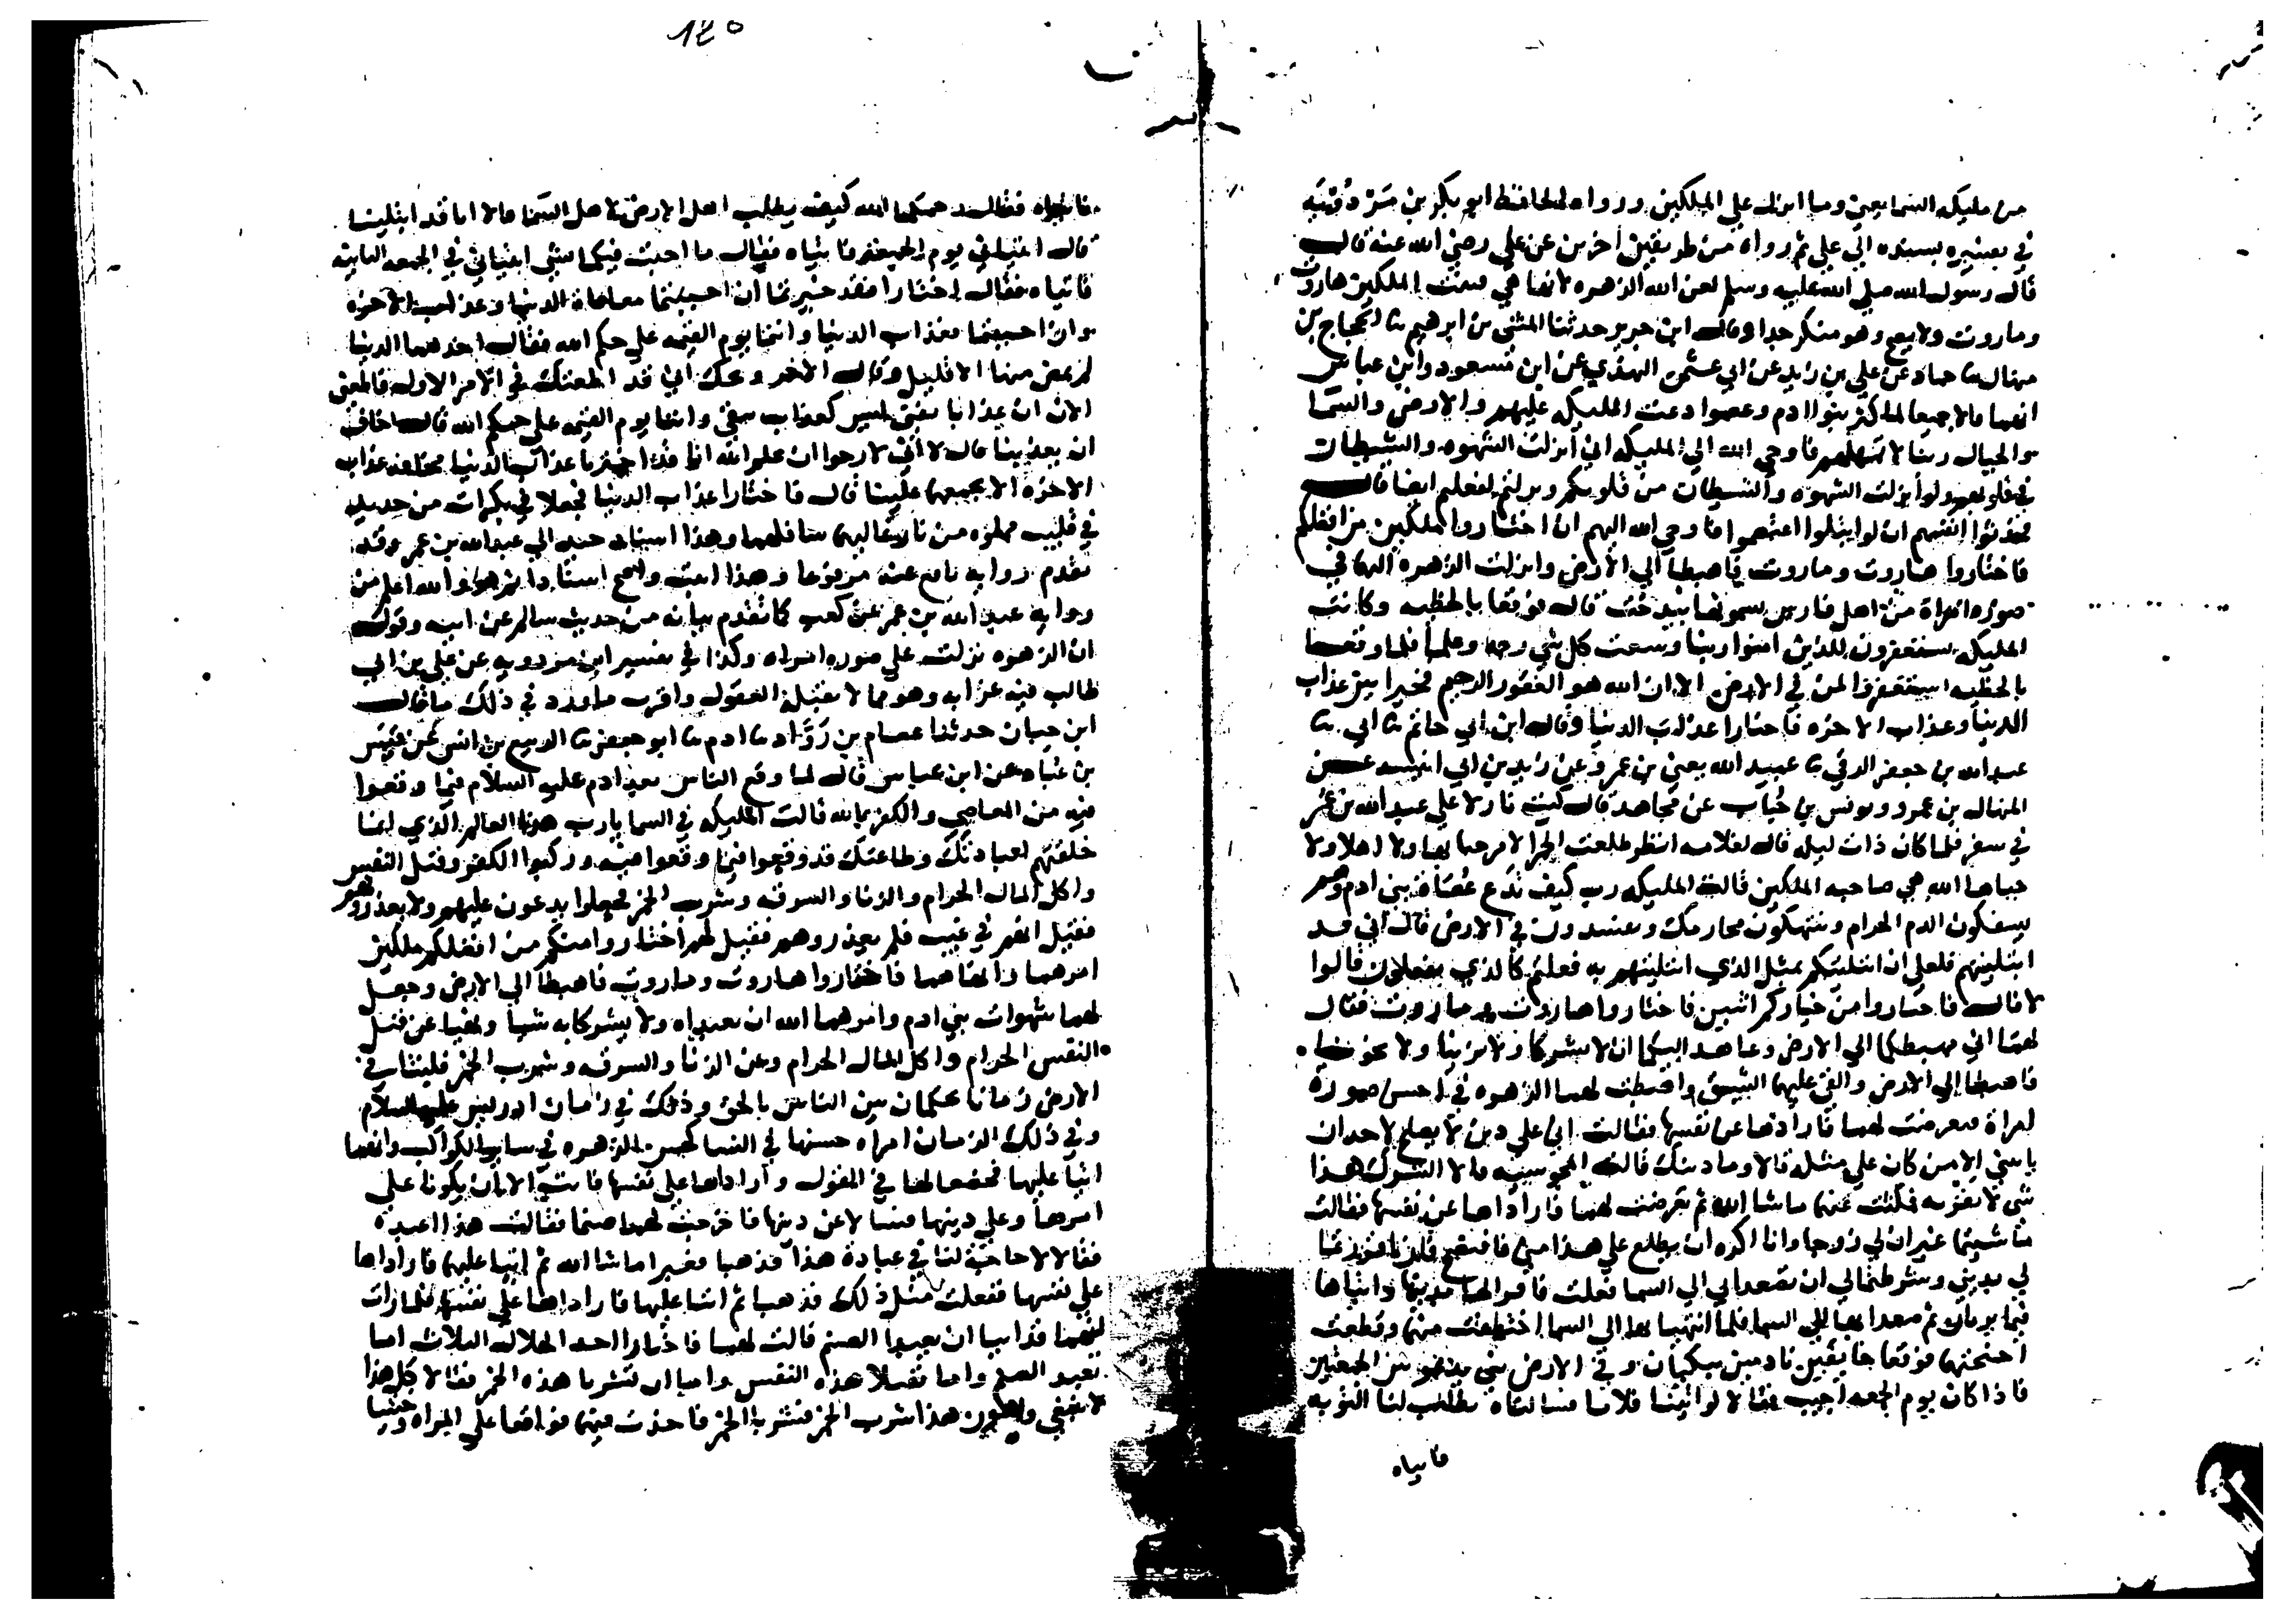 من مليكه السما يعني وما انزل علي الملكين ورواه الحافظ ابو بكر بن مردويه
في تفسيره بسنده الي علي ثم رواه من طريقين اخرين عن علي رضي الله عنه قال
قال رسول الله صلي الله عليه وسلم لعن الله الزهره لانها هي فتنت الملكين هاروت
وماروت ولا يصح وهو منكر جدا وقال ابن جرير حدثنا المثني بن ابرهيم ثنا الحجاج بن
منهال ثنا حماد عن علي بن زيد عن ابي عثمن النهدي عن ابن مسعود وابن عباس
انهما قالا جميعا لما كثر بنوا ادم وعصوا دعت المليكه عليهم والارض والسما
والجبال ربنا لا تمهلهم فاوحي الله الي المليكه اني انزلت الشهوه والشيطان
في قلوبهم ولو انزلت الشهوه والشيطان من قلوبكم ونزلتم لفعلتم ايضا قال
فحدثوا انفسهم ان لو ابتلوا اعتصموا فاوحي الله اليهم ان اختاروا ملكين من افضلكم
فاختاروا هاروت وماروت فاهبطا الي الارض وانزلت الزهره اليهما في
صوره امراه من اهل فارس يسمونها بيدخت قال فوقعا بالخطيه وكانت
المليكه يستغفرون للذين امنوا ربنا وسعت كل شي رحمه وعلما فلما وقعا
بالخطيه استغفروا لمن في الارض الا ان الله هو الغفور الرحيم فخيرا بين عذاب
الدنيا وعذاب الاخره فاختارا عذاب الدنيا وقال ابن ابي حاتم ثنا ابي ثنا
عبد الله بن جعفر الرقي ثنا عبيد الله يعني بن عمرو عن زيد بن ابي انيسه عن
المنهال بن عمرو ويونس بن خباب عن مجاهد قال كنت نازلا علي عبد الله بن عمر
في سفر فلما كان ذات ليله قال لغلامه انظر طلعت الحمرا لا مرحبا بها ولا اهلا ولا
حياها الله هي صاحبه الملكين قالت المليكه رب كيف تدع عصاه بني ادم وهم
يسفكون الدم الحرام وينتهكون محارمك ويفسدون في الارض قال اني قد
ابتليتهم فلعلي ان ابتليتكم بمثل الذي ابتليتهم به فعلتم كالذي يفعلون قالوا
لا قال فاختاروا من خياركم اثنين فاختاروا هاروت وماروت فقال
لهما اني مهبطكما الي الارض وعاهد اليكما ان لا تشركا ولا تزنيا ولا تخونا
فاهبطا الي الارض والقي عليهما الشبق واهبطت لهما الزهره في احسن صوره
امراه فتعرضت لهما فاراداها عن نفسها فقالت اني علي دين لا يصلح لاحد ان
ياتيني الا من كان علي مثله قالا وما دينك قالت المجوسيه قالا الشرك هذا
شي لا نقر به فمكثت عنهما ما شا الله ثم تعرضت لهما فاراداها عن نفسها فقالت
ما شيتما غير ان لي زوجا وانا اكره ان يطلع علي هذا مني فافتضح فان اقررتما
لي بديني وشرطتما لي ان تصعدا بي الي السما فعلت فاقرا لها بدينها واتياها
فيما يريان ثم صعدا بها الي السما فلما انتهيا بها الي السما اختطفت منهما وقطعت
اجنحتهما فوقعا خايفين نادمين يبكيان وفي الارض نبي يدعو بين الجمعتين
فاذا كان يوم الجمعه اجيب فقالا لو اتينا فلانا فسالناه يطلب لنا التوبه
فاتياه
120
فاتياه فقال رحمكما الله كيف يطلب اهل الارض لاهل السما قالا انا قد ابتلينا
قال ايتياني يوم الجمعه فاتياه فقال ما اجبت فيكما بشي ايتياني في الجمعه الثانيه
فاتياه فقال اختارا فقد خيرتما ان احببتما معافاه الدنيا وعذاب الاخره
وان احببتما فعذاب الدنيا وانتما يوم القيمه علي حكم الله فقال احدهما الدنيا
لم يمض منها الا قليل وقال الاخر ويحك اني قد اطعتك في الامر الاول فاطعني
الان ان عذابا يفني ليس كعذاب يبقي وانما يوم القيمه علي حكم الله فاخاف
ان يعذبنا قال لا اني لارجوا ان علم الله انا قد اخترنا عذاب الدنيا مخافه عذاب
الاخره الا يجمعهما علينا قال فاختارا عذاب الدنيا فجعلا في بكرات من حديد
في قليب مملوه من نار عاليهما سافلهما وهذا اسناد جيد الي عبد الله بن عمر وقد
تقدم روايه نافع عنه مرفوعا وهذا اثبت واصح اسنادا ثم هو والله اعلم من
روايه عبد الله بن عمر عن كعب كما تقدم بيانه من حديث سالم عن ابيه وقوله
ان الزهره نزلت علي صوره امراه وكذا في تفسير ابن مردويه عن علي بن ابي
طالب فيه غرابه وهو مما لا تقبله العقول واقرب ما ورد في ذلك ما قال
ابن حبان حدثنا عصام بن رواد ثنا ادم ثنا ابو جعفر ثنا الربيع بن انس عن قيس
بن عباد عن ابن عباس قال لما وقع الناس بعد ادم عليه السلام فيما وقعوا
فيه من المعاصي والكفر بالله قالت المليكه في السما يا رب هذا العالم الذي انما
خلقتهم لعبادتك وطاعتك قد وقعوا فيما وقعوا فيه وركبوا الكفر وقتل النفس
واكل المال الحرام والزنا والسرقه وشرب الخمر فجعلوا يدعون عليهم ولا يعذرونهم
فقيل انهم في غيب فلم يعذروهم فقيل لهم اختاروا منكم من افضلكم ملكين
امرهما وانهاهما فاختاروا هاروت وماروت فاهبطا الي الارض وجعل
لهما شهوات بني ادم وامرهما الله ان يعبداه ولا يشركا به شيا ونهيا عن قتل
النفس الحرام واكل المال الحرام وعن الزنا والسرقه وشرب الخمر فلبثا في
الارض زمانا يحكمان بين الناس بالحق وذلك في زمان ادريس عليه السلام
وفي ذلك الزمان امراه حسنها في النسا كحسن الزهره في ساير الكواكب وانهما
اتيا عليها فخضعا لها في القول واراداها علي نفسها فابت الا ان يكونا علي
امرها وعلي دينها فسالا عن دينها فاخرجت لهما صنما فقالت هذا اعبده
فقالا لا حاجه لنا في عباده هذا فذهبا فغبرا ما شا الله ثم اتيا عليها فاراداها
علي نفسها ففعلت مثل ذلك فذهبا ثم اتيا عليها فاراداها علي نفسها فلما رات
انهما قد ابيا ان يعبدا الصنم قالت لهما فاختارا احد الخلال الثلاث اما
تعبدا الصنم واما تقتلا هذه النفس واما ان تشربا هذه الخمر فقالا كل هذا
لا ينبغي واهون هذا شرب الخمر فشربا الخمر فاخذت فيهما فواقعا علي المراه وخشيا